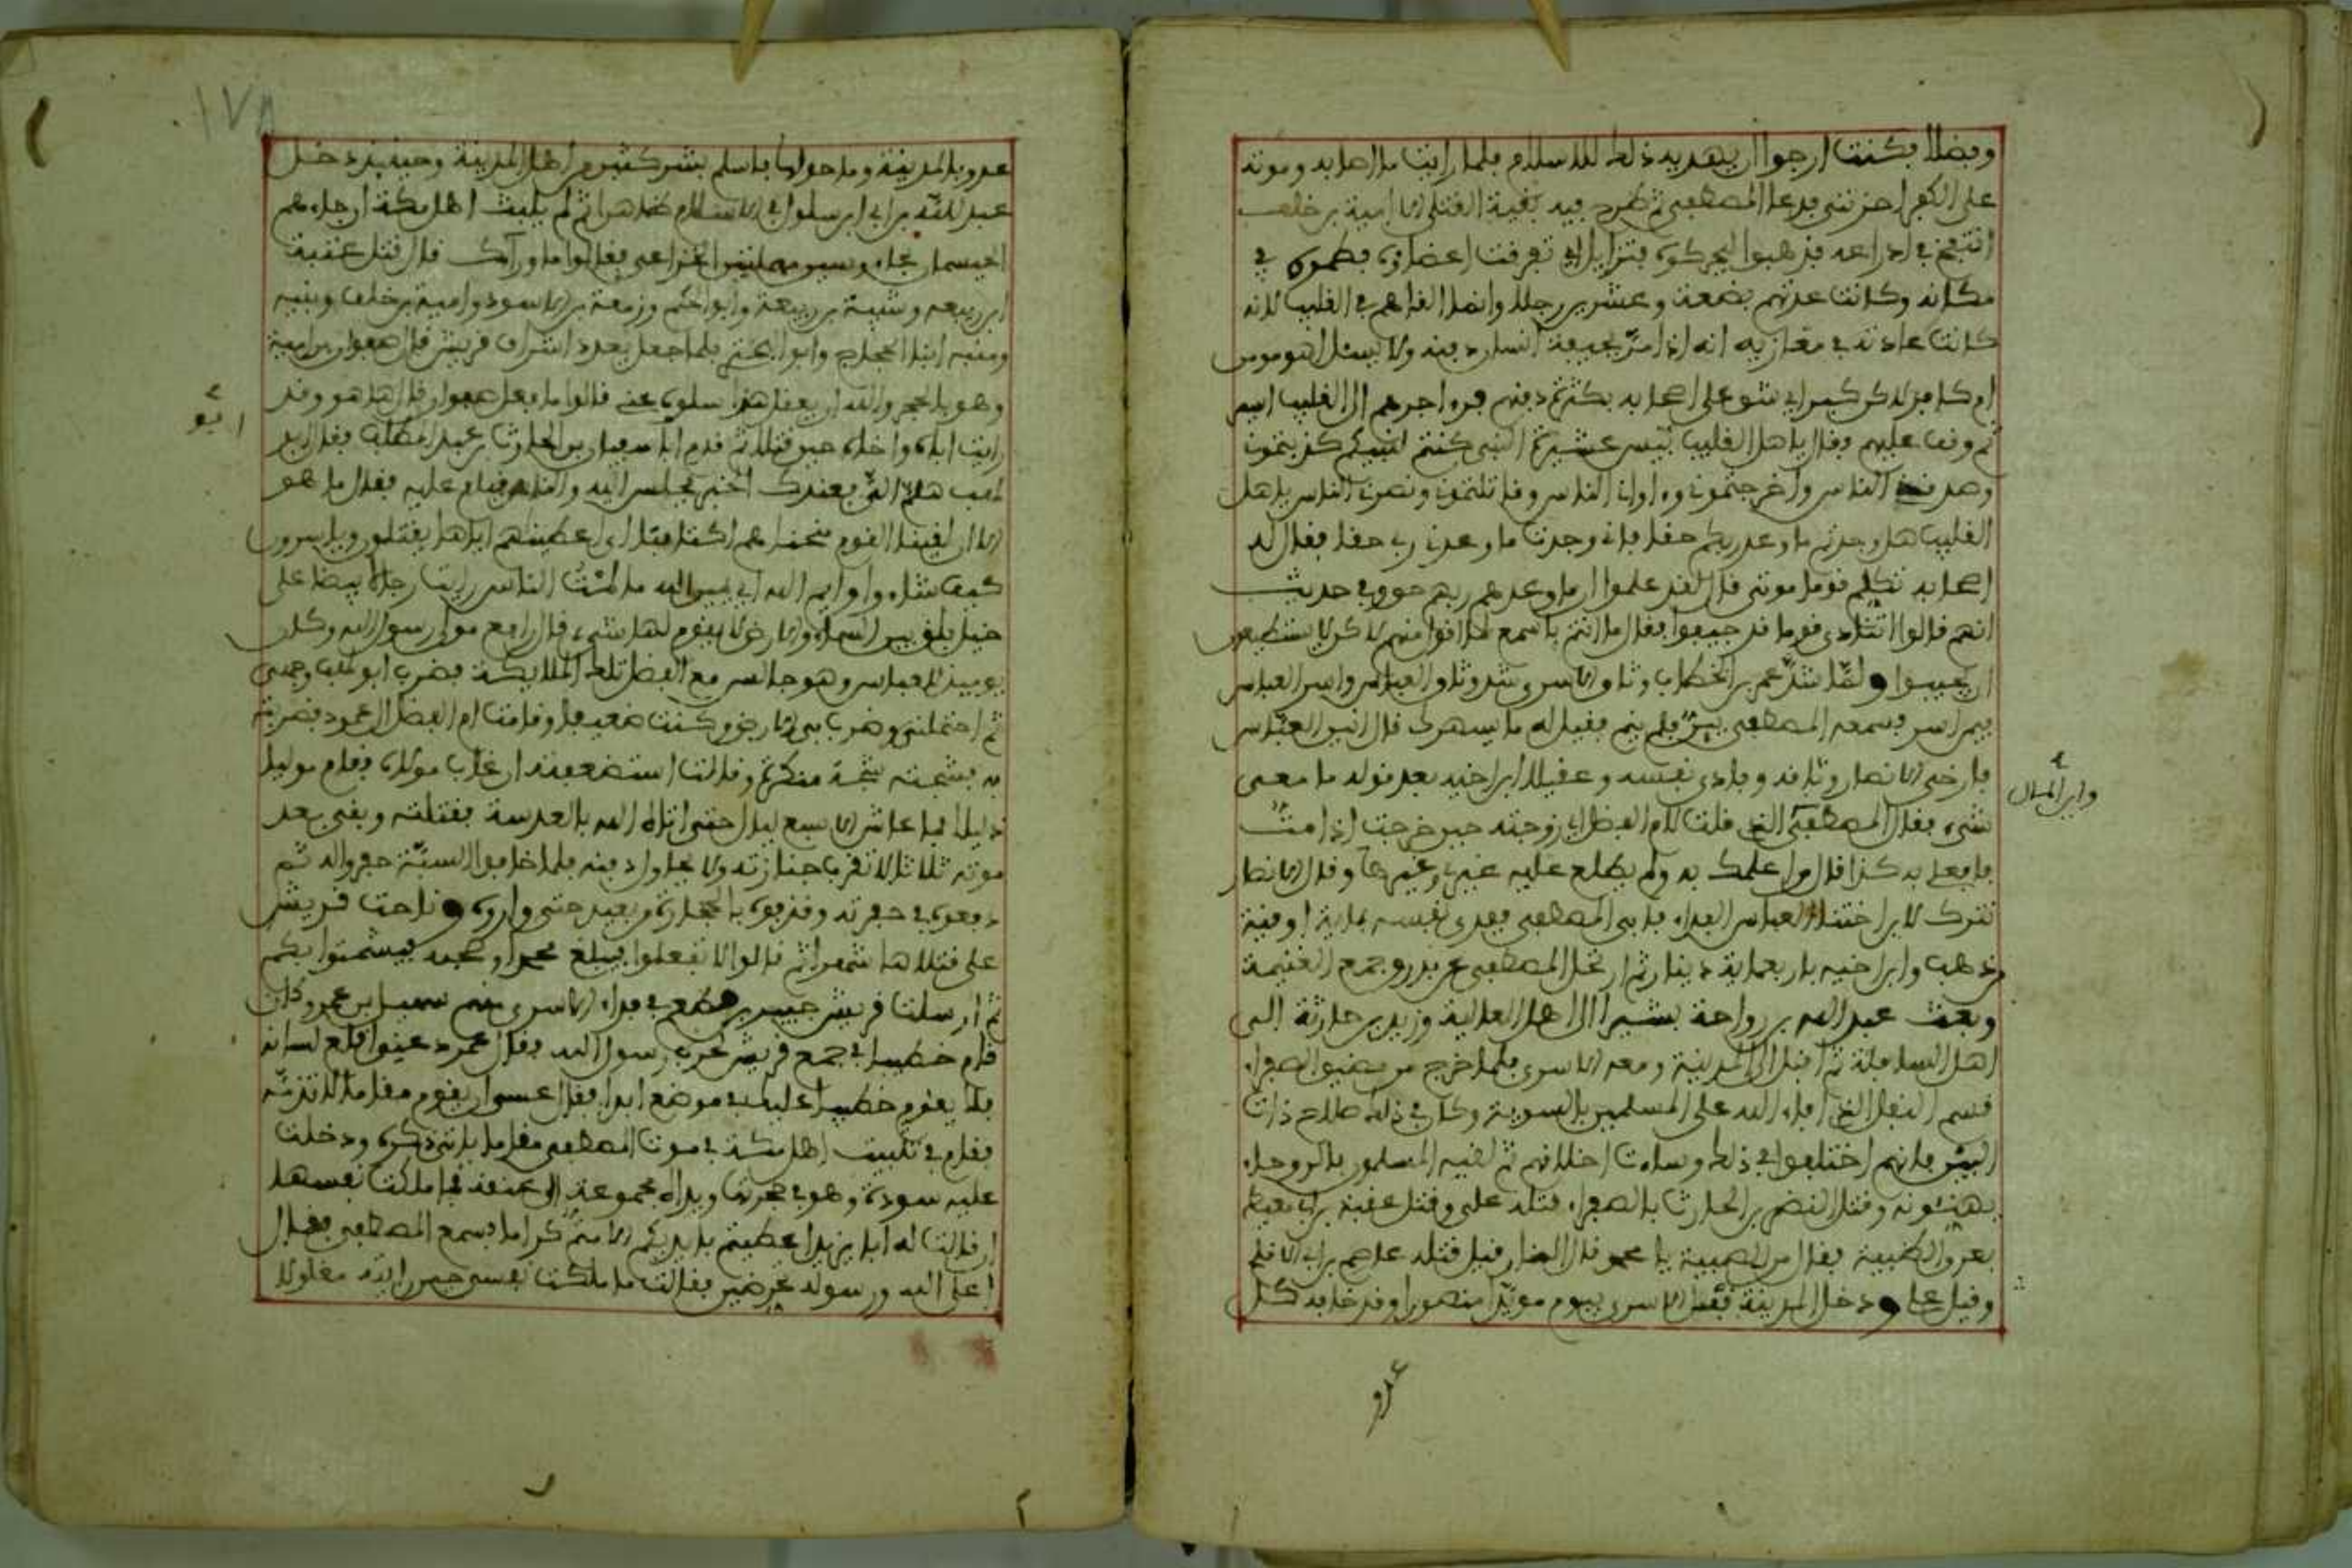 وفضلا فكنت ارجوا ان يهديه ذلك للاسلام فلما رايت ما اصابه وموته
على الكفر احزنني فدعا المصطفى ثم طرح فيه بقية القتلى الا امية بن خلف
انتفخ في ادراعه فذهبوا ليحركوه فتزايل اي تفرقت اعضاؤه فطموه في
مكانه وكانت عدتهم بضعة وعشرين رجلا وانما القاهم في القليب لانه
كانت عادته في مغازيه انه اذا مر بجيفة انسان دفنه ولا يسئل اهو مومن
ام كافر لاكن كبر اي شق على اصحابه بكثرتهم دفنهم فره اجرهم الى القليب
ثم وقف عليهم وقال يا هل القليب بيس عشيرة النبي كنتم لنبيكم كذبتموني
وصدقني الناس واخرجتموني واواني الناس وقاتلتموني ونصرني الناس يا هل
القليب هل وجدتم ما وعد ربكم حقا فاني وجدت ما وعدني ربي حقا فقال له
اصحابه تكلم قوما موتى قال لقد علموا ان ما وعدهم ربهم حق وفي حديث
انهم قالوا اتنادي قوما قد جيفوا فقال ما انتم باسمع لما اقول منهم لاكن لا يستطيعون
ان يجيبوا ولما شد عمر بن الخطاب وثاق الاسرى شد وثاق العباس وامسى العباس
فيمن اسر فسمعه المصطفى يئن فلم ينم فقيل له ما يسهرك قال انين العباس
فارخى الانصار وثاقه وفادى نفسه وعقيلا ابن اخيه بعد قوله ما معي
وابن المال
شيء فقال المصطفى الذي قلت لام الفضل اي زوجته حين خرجت اذا مت
فافعلي به كذا قال وما علمك به ولم يطلع عليه غيري وغيرها وقال الانصار
نترك لابن اختنا العباس الفداء فابى المصطفى ففدى نفسه بماية اوقية
ذهب وابن اخيه باربعماية دينار ثم ارتحل المصطفى عن بدر وجمع الغنيمة
وبعث عبد الله بن رواحة بشيرا الى اهل العالية وزيد بن حارثة الى
اهل السافلة ثم اقبل الى المدينة ومعه الاسرى فلما خرج من مضيق الصفراء
قسم النفل الذي افاء الله على المسلمين بالسوية وكان في ذلك صلاح ذات
البين فانهم اختلفوا في ذلك وساءت اخلاقهم ثم لقيه المسلمون بالروحاء
يهنئونه وقتل النضر بن الحارث بالصفراء قتله علي وقتل عقبة بن ابي معيط
بعرق الظبية فقال من للصبية يا محمد قال النار قيل قتله عاصم بن ابي الاقلح
وقيل علي ودخل المدينة قبل الاسرى بيوم مويدا منصورا وقد خافه كل
عدو
١٧٨
عدو بالمدينة وما حولها فاسلم بشر كثير من اهل المدينة وحينيذ دخل
عبد الله بن ابي ابن سلول في الاسلام ظاهرا ثم لم يلبث اهل مكة ان جاءهم
الحيسمان بن الخزاعي فقالوا ما وراءك قال قتل عقبة
ابن ربيعة وشيبة بن ربيعة وابو الحكم وزمعة بن الاسود وامية بن خلف ونبيه
ومنبه ابنا الحجاج وابو البختري فلما جعل يعدد اشراف قريش قال صفوان بن امية
وهو بالحجر والله ان يعقل هذا سلوه عني قالوا ما فعل صفوان قال ها هو وقد
رايت اباه واخاه حين قتلا ثم قدم ابا سفيان بن الحارث بن عبد المطلب فقال ابو
ابو
لهب هلم الي فعندك الخبر فجلس اليه والناس قيام عليه فقال ما هو
الا ان لقينا القوم منحناهم اكتافنا اي اعطيناهم اياها يقتلون وياسرون
كيف شاءوا وايم الله اي يمين الله ما لمت الناس راينا رجالا بيضا على
خيل بلق بين السماء والارض لا يقوم لها شيء قال رافع مولى رسول الله وكان
يوميذ للعباس وهو جالس مع ام الفضل تلك الملايكة فضرب ابو لهب وجهي
ثم احتملني وضرب بي الارض وكنت ضعيفا وقامت ام الفضل الى عمود فضربته
به فشجته شجة منكرة وقالت استضعفته ان غاب مولاه فقام موليا
ذليلا فما عاش الا سبع ليال حتى اتاه الله بالعدسة فقتلته وبقي بعد
موته ثلاثا لا تقرب جنازته ولا يحاول دفنه فلما خافوا السبة حفروا له ثم
دفعوه في حفرته وقذفوه بالحجارة من بعيد حتى واروه وناحت قريش
على قتلاها شهرا ثم قالوا لا تفعلوا فيبلغ محمدا وصحبه فيشمتوا بكم
ثم ارسلت قريش في فداء الاسرى منهم سهيل بن عمرو وكان
قام خطيبا في جمع قريش لحرب رسول الله فقال عمر دعني اقلع لسانه
فلا يقوم خطيبا عليك في موضع ابدا فقال عسى ان يقوم مقاما لا تذمه
فقام في تثبيت اهل مكة في موت المصطفى مقاما ياتي ذكره ودخلت
عليه سودة وهو في حجرتها ويداه مجموعة الى عنقه فما ملكت نفسها
ان قالت له ابا يزيد اعطيتم بايديكم الا متم كراما فسمع المصطفى فقال
اعلى الله ورسوله تحرضين فقالت ما ملكت نفسي حين رايته مغلولا